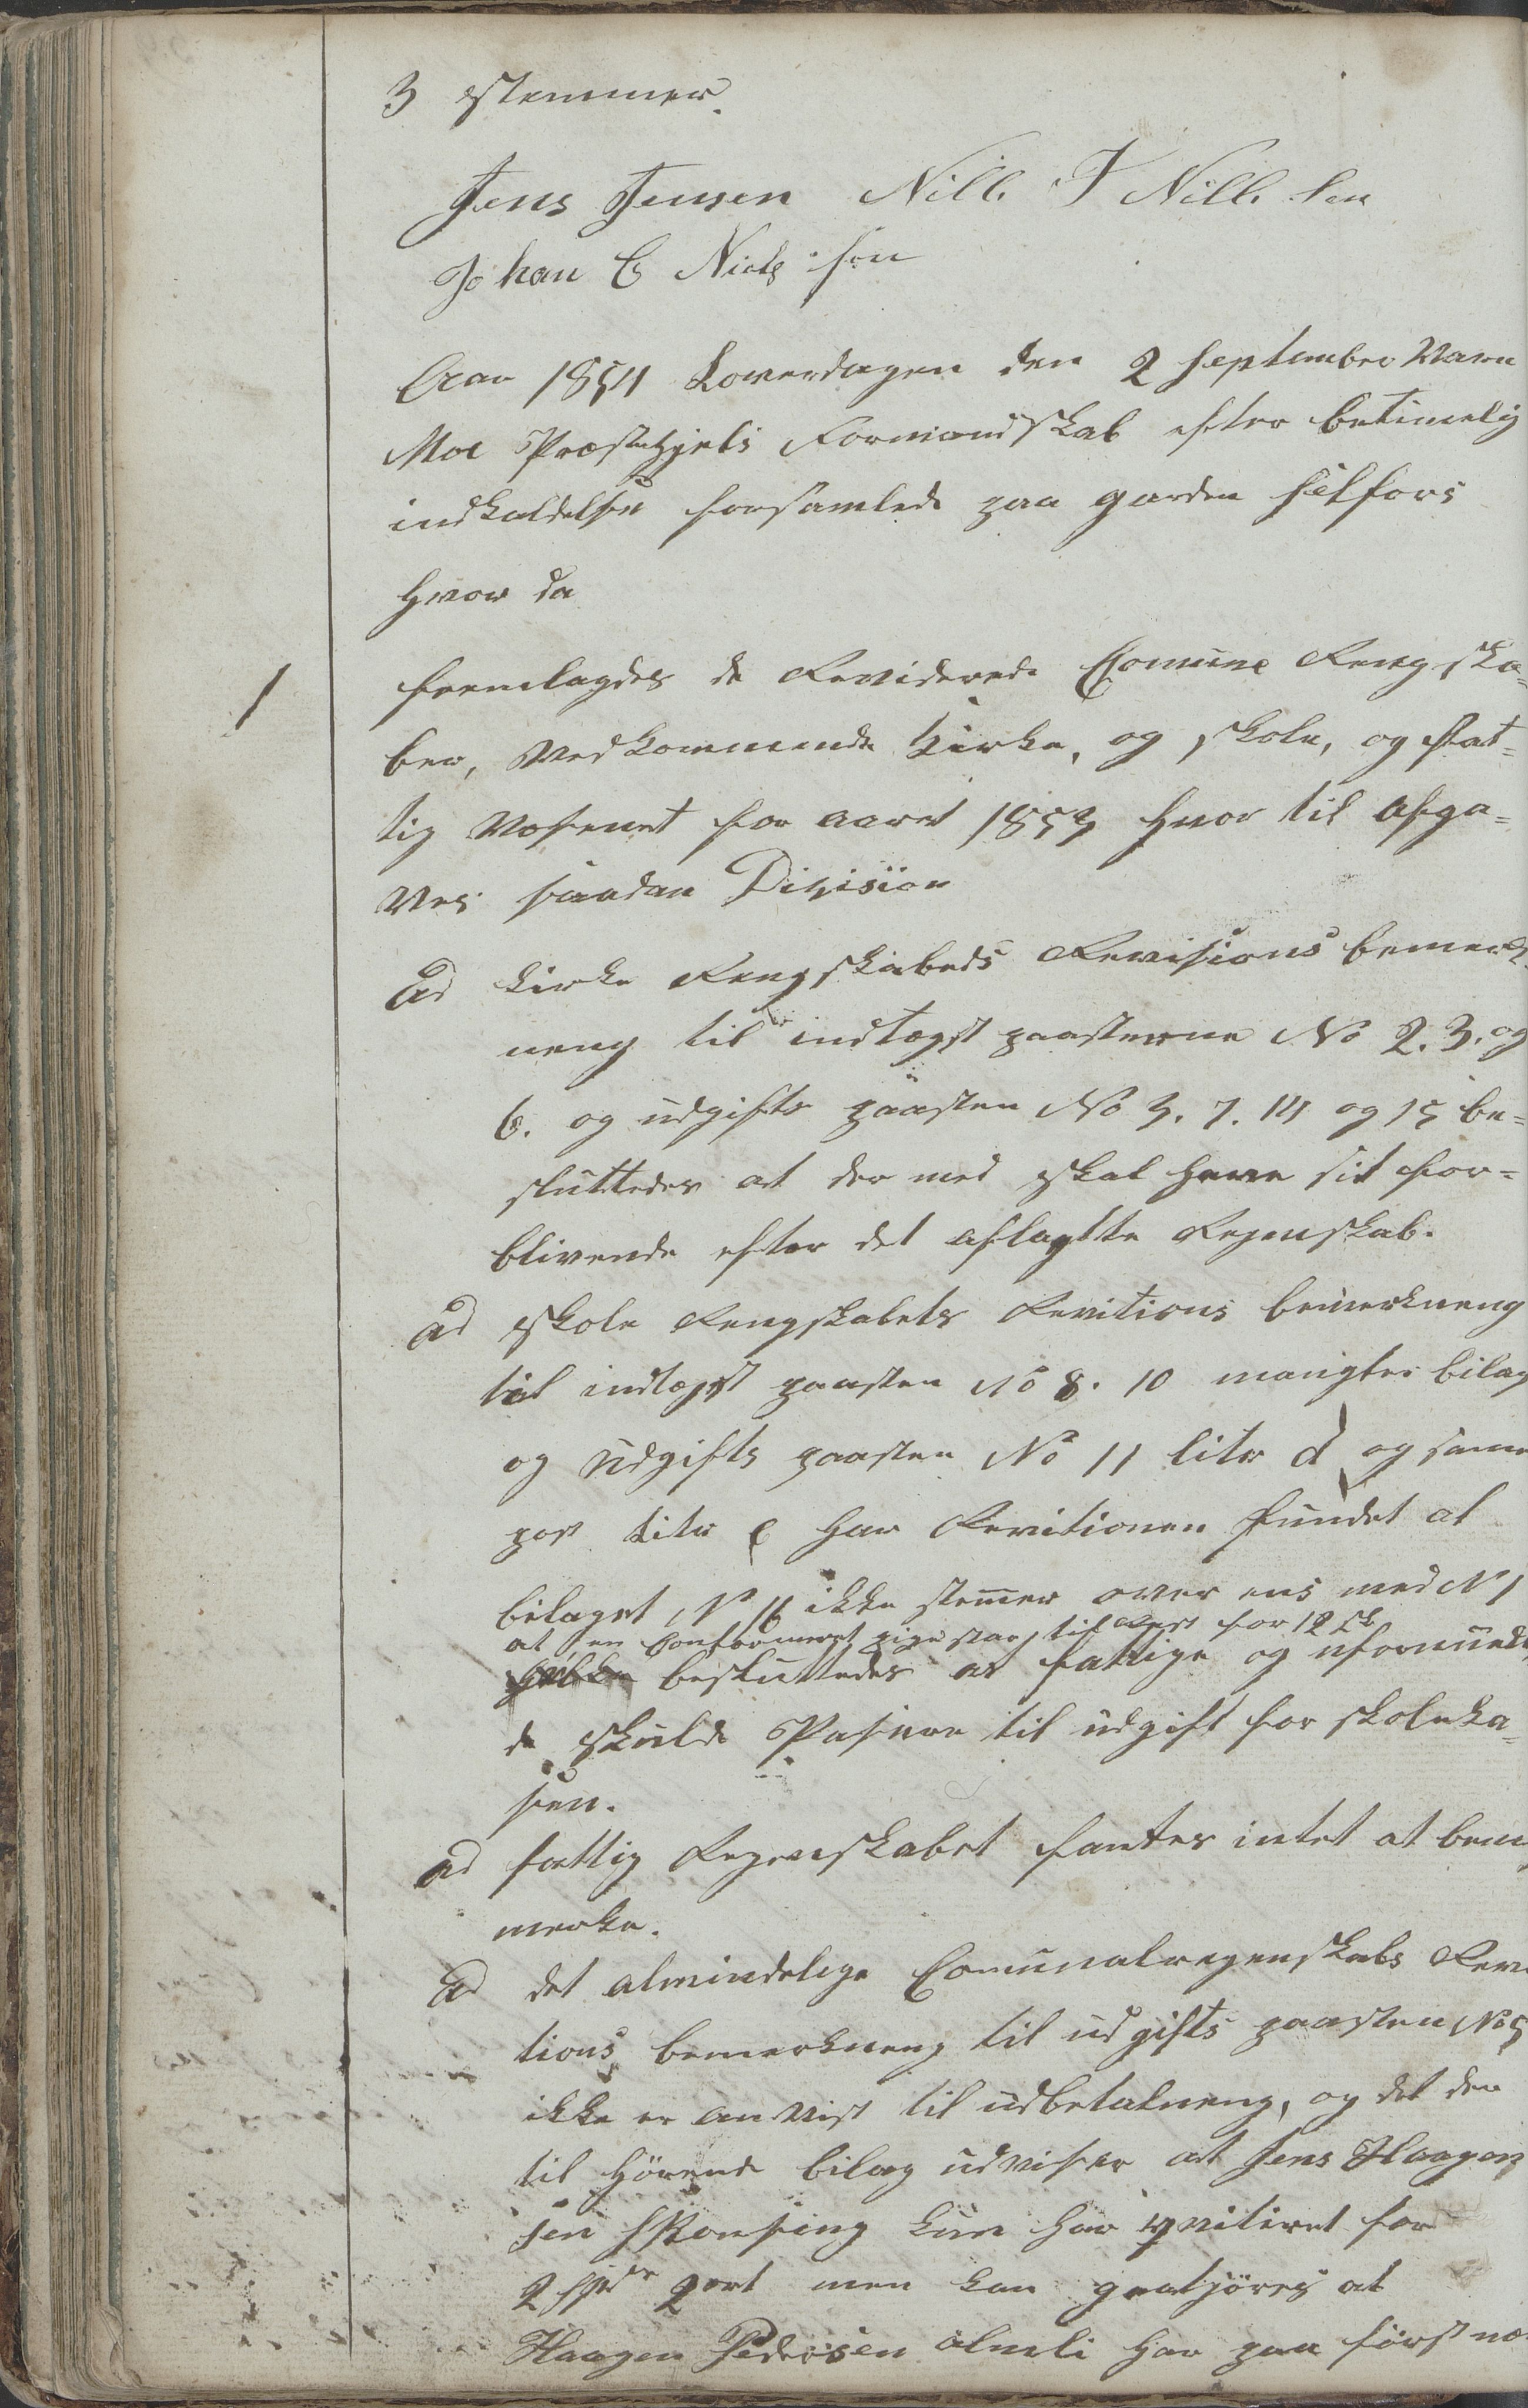 3 stemmer.
Jens Jensen Nils J Nilsen
Johan C Nielssen
Aar 1854 Loverdagen den 2 september Varn
Moe Præstegjels Formandskab efter betimelig
indkaldelse forsamlede paa garden
hvor da
1 fremlagdes de Reviderede Comune Rengska=
ber, vedkommende kirke, og skole, og fat=
tig væsenet for aaret 1853 hvor til afga=
ves saadan
Ad kirke Rengskabeds Revisions bemerk
neng til indtægst paasterne No 2. 3. og
6. og udgifts paasten No 3. 7. 14 og 15 be=
sluttedes at der med skal have sit for=
blivende efter det aflagtte Regenskab.
ad skole Rengskabets Revitions bemerkneng
til indtægst paasten No 8. 10 mangler bilag
og Udgifts paasten No 11 litr d og same
post litr e har Revitionen fundet at
bilaget, N 16 ikke stemer over ens med N 1
at en Confirmeret pige staar til Rest for 12 sk
besluttedes at fattige og uformuen
de skulde Pasere til udgift for skoleka=
sen.
ad fattig Regenskabet fantes intet at bem
merke.
Ad det almindelige Comunalregenskabs Revi
tions bemerkneng til udgifts paasten No 5
ikke er anvist til udbetalneng, og det der
til hörende bilag udviser at Jens Haagen
sen kun har qviteret for
2 spdr 2 ort men kan godtjöres at
Haagen Pedersen har paa först næ